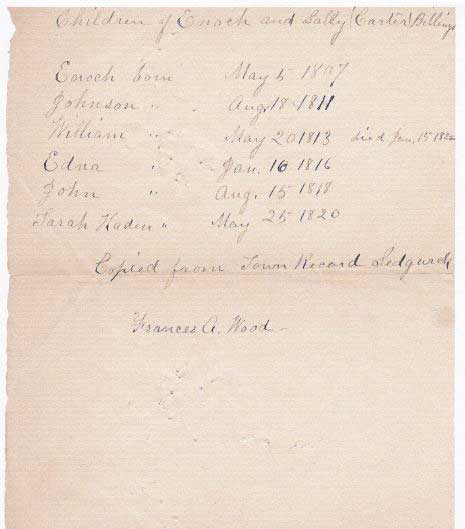 Children of Enoch and Sally (Carter) Billings
Enoch born May 5 1807
Johnson " Aug. 18 1811
William " May 20 1813 died Jan, 15 182
Edna " Jan. 16 1816
John " Aug. 15 1818
Sarah Haden " May 25 1820
Copied from Town Record Sedgwick
Frances A. Wood